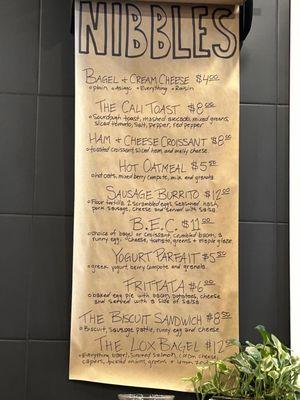 NIBBLES
BAGEL + CREAM CHEESE $4.00
plain Asiago Everything Raisin
THE CALI TOAST $8.00
Sourdough toast, mashed avocado, mixed greens,
sliced tomato, salt, pepper, red pepper
HAM + CHEESE CROISSANT $8.50
toasted croissant, sliced ham, and melty cheese
HOT OATMEAL $5.50
hot oats, mixed berry compote, milk and granola
SAUSAGE BURRITO $12.00
Flour tortilla, 2 scrambled eggs, seasoned hash,
pork sausage, cheese and served with salsa
B.E.C. $11.00
choice of bagel or croissant, crumbled bacon, a
runny egg, cheese, tomato, greens + maple glaze
YOGURT PARFAIT $5.00
greek yogurt, berry compote and granola.
FRITTATA $6.00
baked egg pie with bacon, potatoes, cheese
and served with a side of salsa
THE BISCUIT SANDWICH $8.50
Biscuit, sausage pattie, runny egg and cheese
THE LOX BAGEL $12
Everything bagel, smoked salmon, cream cheese
capers, pickled onions, greens + lemon